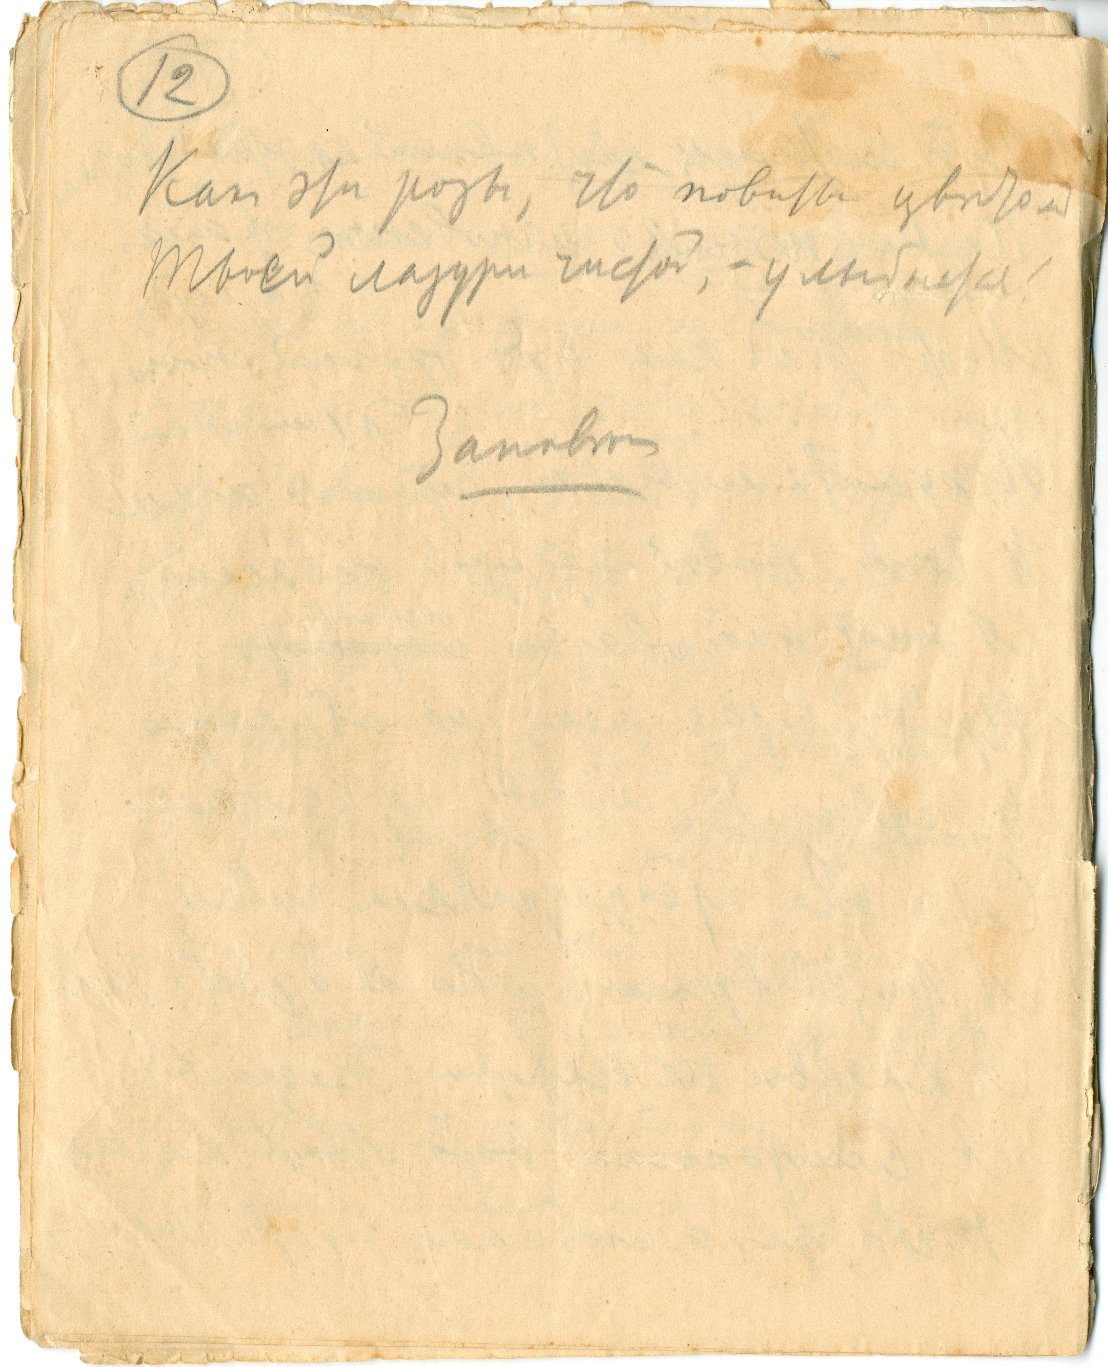 12
Как эти розы, что повиты цветом
Твоей лазури чистой, – улыбнись!
Занавес